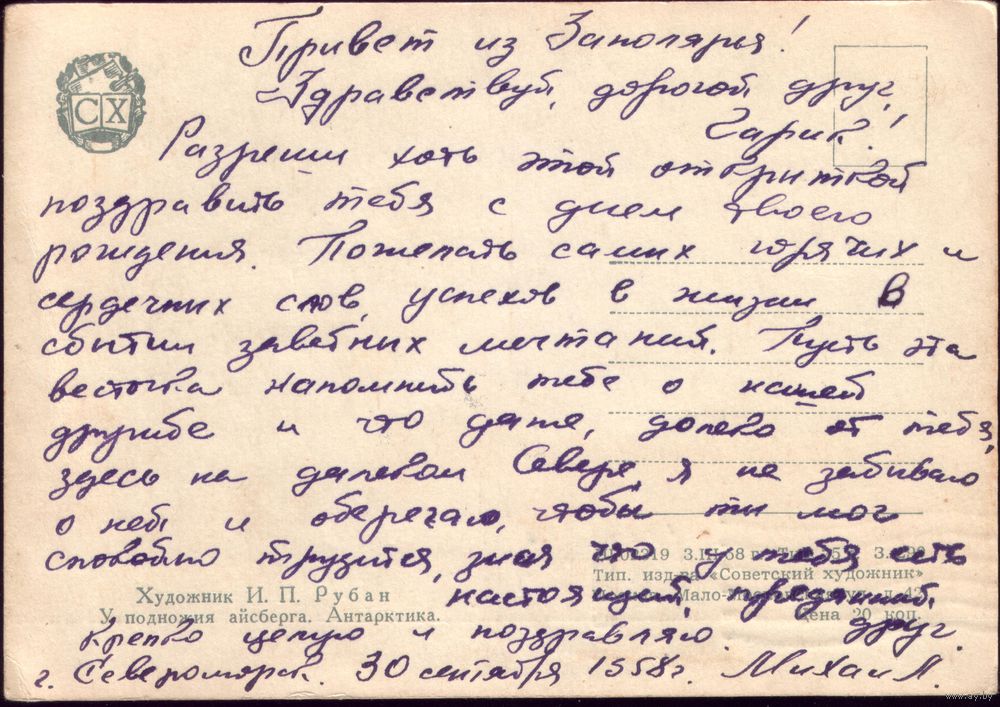 Привет из Заполярья!
Здравствуй, дорогой друг,
Гарик!
СХ
Разреши хоть этой открыткой
поздравить тебя с днем твоего
рождения. Пожелать самих горячих и
сердечних слов, успехов в жизни в
сбытии заветних мечтаний. Пусть эта
весточка напомнить тебе о нашей
дружбе и что даже, далеко от тебя,
здесь на далеком Севере, я не забиваю
о ней и оберегаю, чтобы ти мог
спокойно трудится, зная что у тебя есть
настоящий, преданний
друг.
Крепко целую и поздравляю.
г. Североморск. 30 сентября 1958г. Михаил.
Художник И. П. Рубан
У подножия айсберга. Антарктика.
3.III-58 г.
Тип. изд-ва «Советский художник»
Цена 20 коп.
www.ay.by